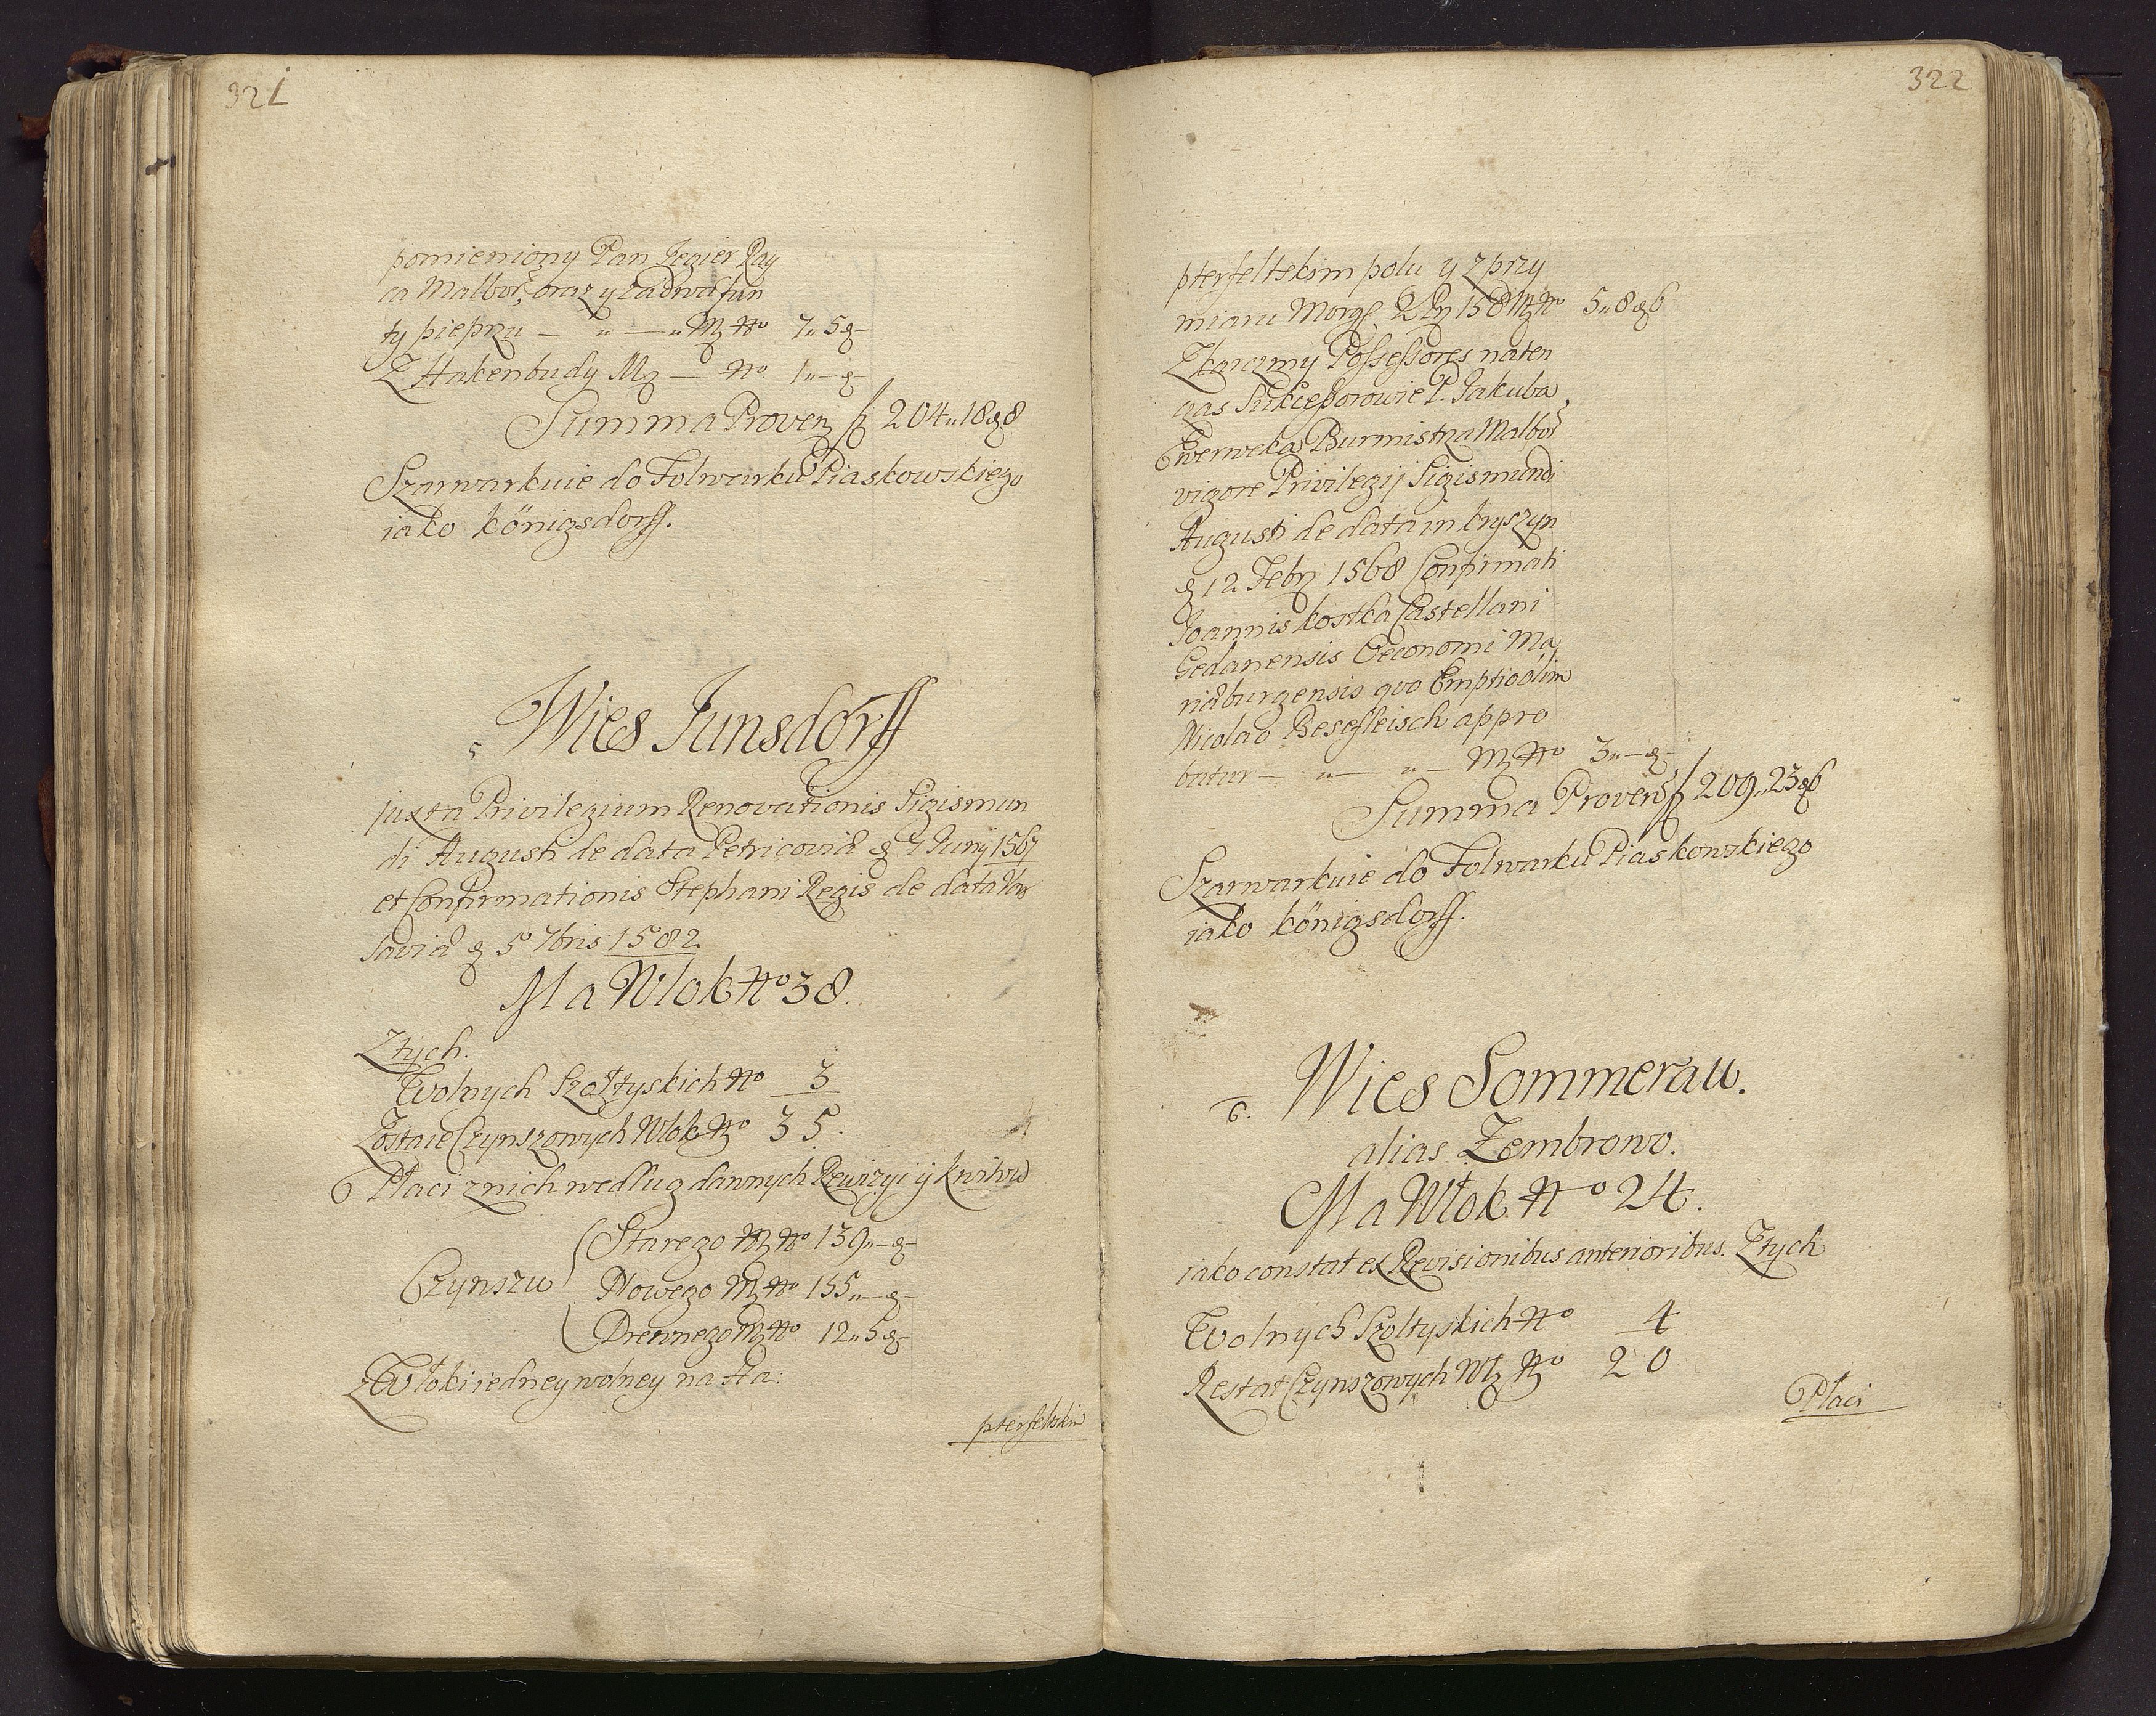 321
pomieniony Pan Jegier Ray
ca Malbor, oraz y zadwa fun
ty pieprzu — „ — „ Mz No 7„ 5 g —
Z Hakenbudy Mz — No 1„ — g —
Summa Proven fl 204„ 18 g 8
Szarwarkuie do Folwarku Piaskowskiego
iako Königsdorff.
5 Wies Junsdorff
juxta Privilegium Renovationis Sigismun
di Augusti de data Petricoviæ 4 Juny 1567
et Confirmationis Stephani Regis de data
saviæ 5 7bris 1582.
Ma Wlok No 38.
Ztych.
Wolnych Szołtyskich No 3
Zostaie Czynszowych Wlok No 35.
Płaci znich wedlug dawnych Rewizyi y kwitow
Czynszu
Starego Mz No 139„ — g —
Nowego Mz No 155„ — g —
Drewnego Mz No 12„ 5 g —
z Włoki iedney wolney na Ha:
pterfeltskim
322
pterfeltskim polu y z przy
miaru Morg. 2 15 Mz No 5„ 8 g 6
Z karczmy Possessores naten
czas Sukcessorowie P. Jakuba
Ewerweka Burmistrza Malbor
vigore Privilegij Sigismundi
Augusti de data in knyszyn
12 Febr 1568 Confirmati
Joannis kostka Castellani
Gedanensis Oeconomi Ma
riæburgensis quo Emptio olim
Nicolao Besefleisch appro
batur — „ — „ — Mz No 3„ — g —
Summa Proven fl 209„ 23 g 6
Szarwarkuie do Folwarku Piaskowskiego
iako Königsdorff.
6. Wies Sommerau.
alias Zembrowo.
Ma Włok No 24.
iako constat ex Revisionibus anterioribus. Ztych
Wolnych Szoltyskich No 4
Restat Czynszowych Wł No 20
Płaci